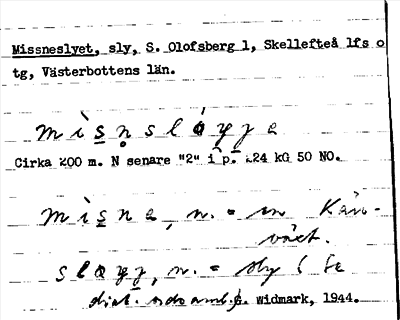 Missneslyet, sly, S. Olofsberg 1, Skellefteå lfs o
tg, Västerbottens län.
mìs̲n̥sløyye
Cirka 200 m. N senare "2" i p. 124 kG 50 NO.
mìs̲ne, n. = en Kärr-
växt.
n. = sly (
dial. Widmark, 1944.